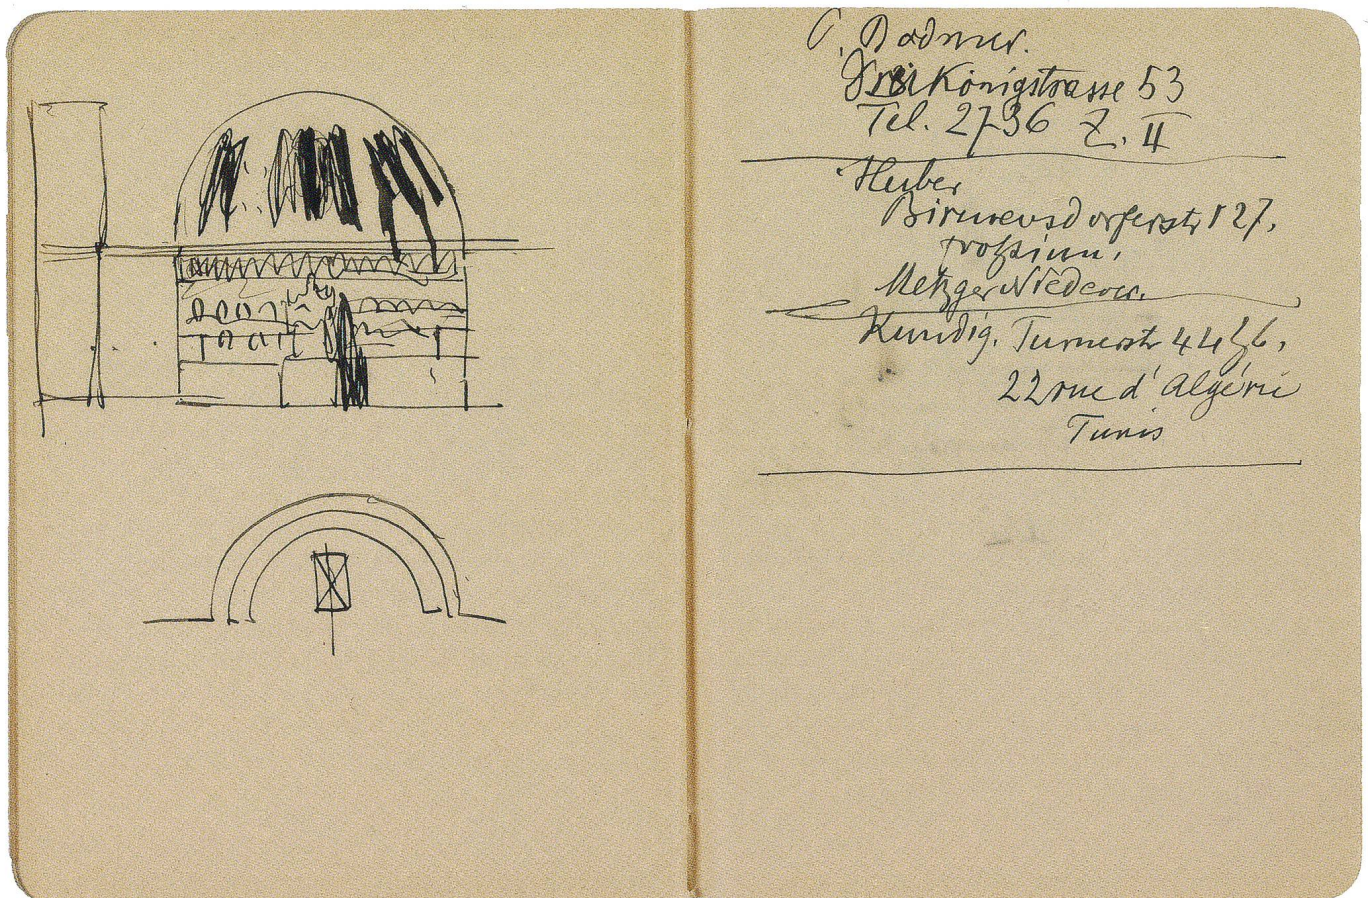 C. Bodmer.
Dreikönigstrasse 53
Tel. 2736 Z. II
Huber
Birmensdorferstr 127,
Metzger
Kündig. Turnerstr 44 Z 6,
22 rue d'Algérie
Tunis